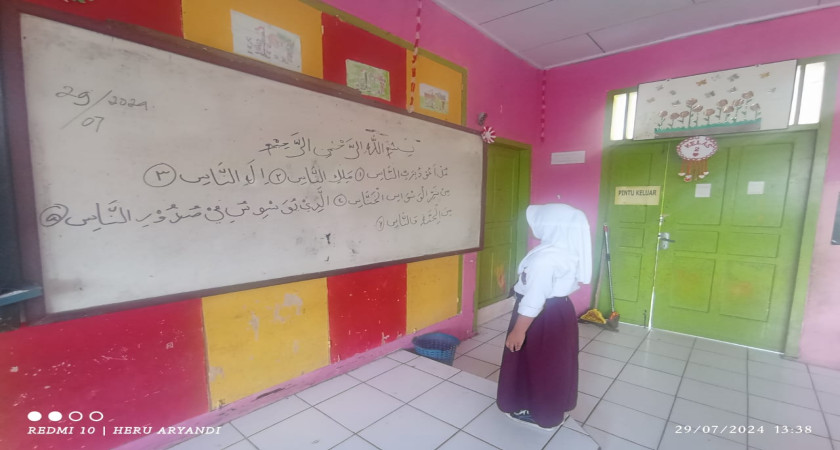 29/2024
/07
بِسْمِ اللّٰهِ الرَّحْمٰنِ الرَّحِيْمِ
قُلْ اَعُوْذُ بِرَبِّ النَّاسِ ① مَلِكِ النَّاسِ ② اِلٰهِ النَّاسِ ③
مِنْ شَرِّ الْوَسْوَاسِ الْخَنَّاسِ ④ الَّذِيْ يُوَسْوِسُ فِيْ صُدُوْرِ النَّاسِ ⑤
مِنَ الْجِنَّةِ وَالنَّاسِ ⑥
KELAS
PINTU KELUAR
REDMI 10 | HERU ARYANDI
29/07/2024 13:38